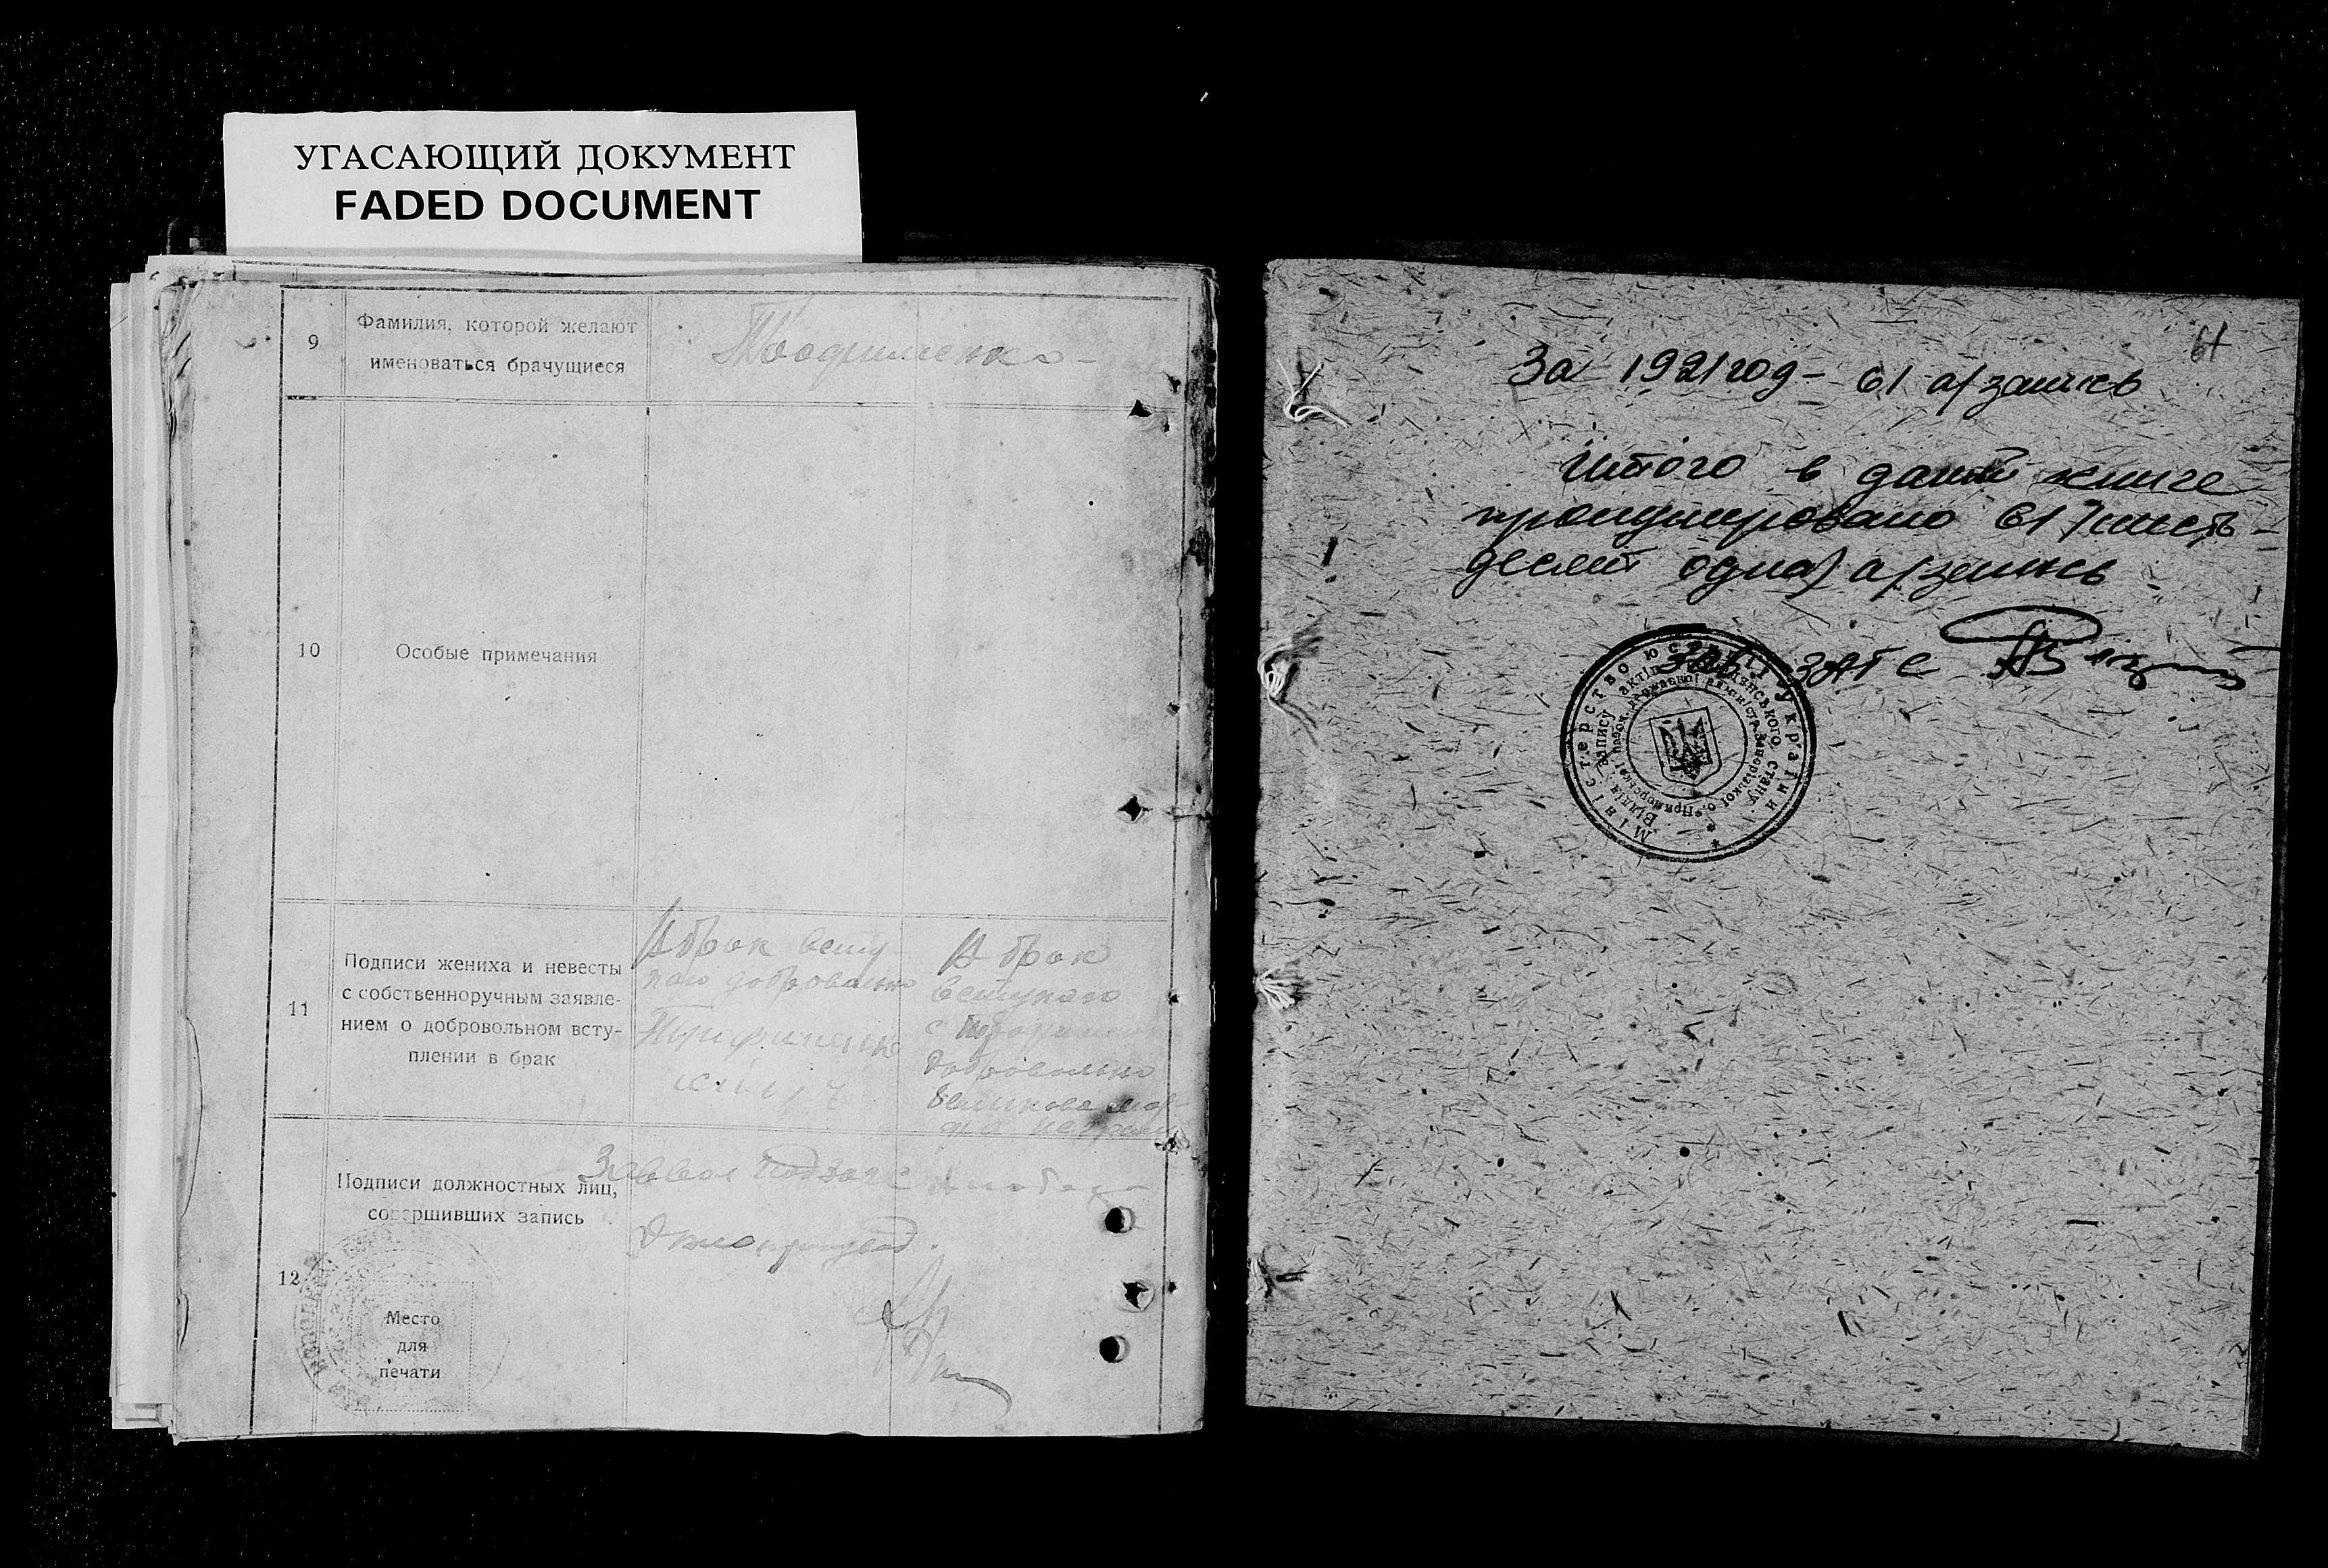 УГАСАЮЩИЙ ДОКУМЕНТ
FADED DOCUMENT
9
Фамилия, которой желают
именоваться брачущиеся
10
Особые примечания
11
Подписи жениха и невесты
с собственноручным заявле-
нием о добровольном всту-
плении в брак
В брак всту
паю добровольно
В брак
вступаю
с
добровольно
12
Подписи должностных лиц,
совершивших запись
Место
для
печати
61
За 1921 год - 61 а/запись
Итого в данной книге
пронумеровано 61 /шесть-
десят одна/ а/запись
Зав. ЗАГС
Міністерство юстиції України
Відділ запису актів громадянського стану